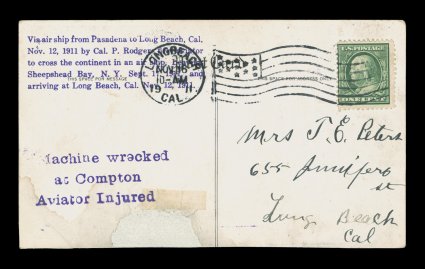 Via air ship from Pasadena to Long Beach, Cal.
Nov. 12, 1911 by Cal. P. Rodgers,
to cross the continent in an air
Sheepshead Bay, N. Y. Sept. and
arriving at Long Beach, Cal. 12, 1911.
THIS SPACE FOR MESSAGE
THIS SPACE FOR ADDRESS ONLY
LONG BEACH
NOV
10-AM
19 11
CAL.
U.S. POSTAGE
ONE
Machine wrecked
at Compton
Aviator Injured
Mrs T. E. Peters
655 Junipero
st
Long Beach
Cal